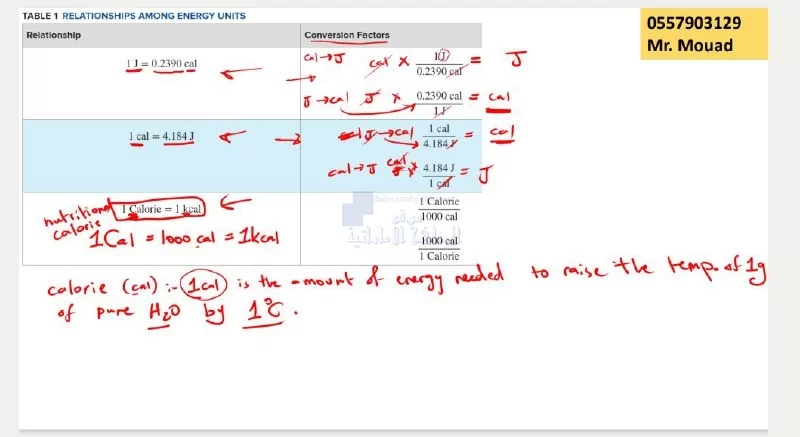 TABLE 1 RELATIONSHIPS AMONG ENERGY UNITS
0557903129
Mr. Mouad
Relationship
Conversion Factors
1 J = 0.2390 cal
cal → J cal × 1 J / 0.2390 cal = J
J → cal J × 0.2390 cal / 1 J = cal
1 cal = 4.184 J
J → cal 1 cal / 4.184 J = cal
cal → J cal × 4.184 J / 1 cal = J
nutritional calorie
1 Calorie = 1 kcal
1 Calorie / 1000 cal
1Cal = 1000 cal = 1kcal
1000 cal / 1 Calorie
موقع
المناهج الإماراتية
calorie (cal) :- 1cal is the amount of energy needed to raise the temp. of 1g
of pure H₂O by 1°C.